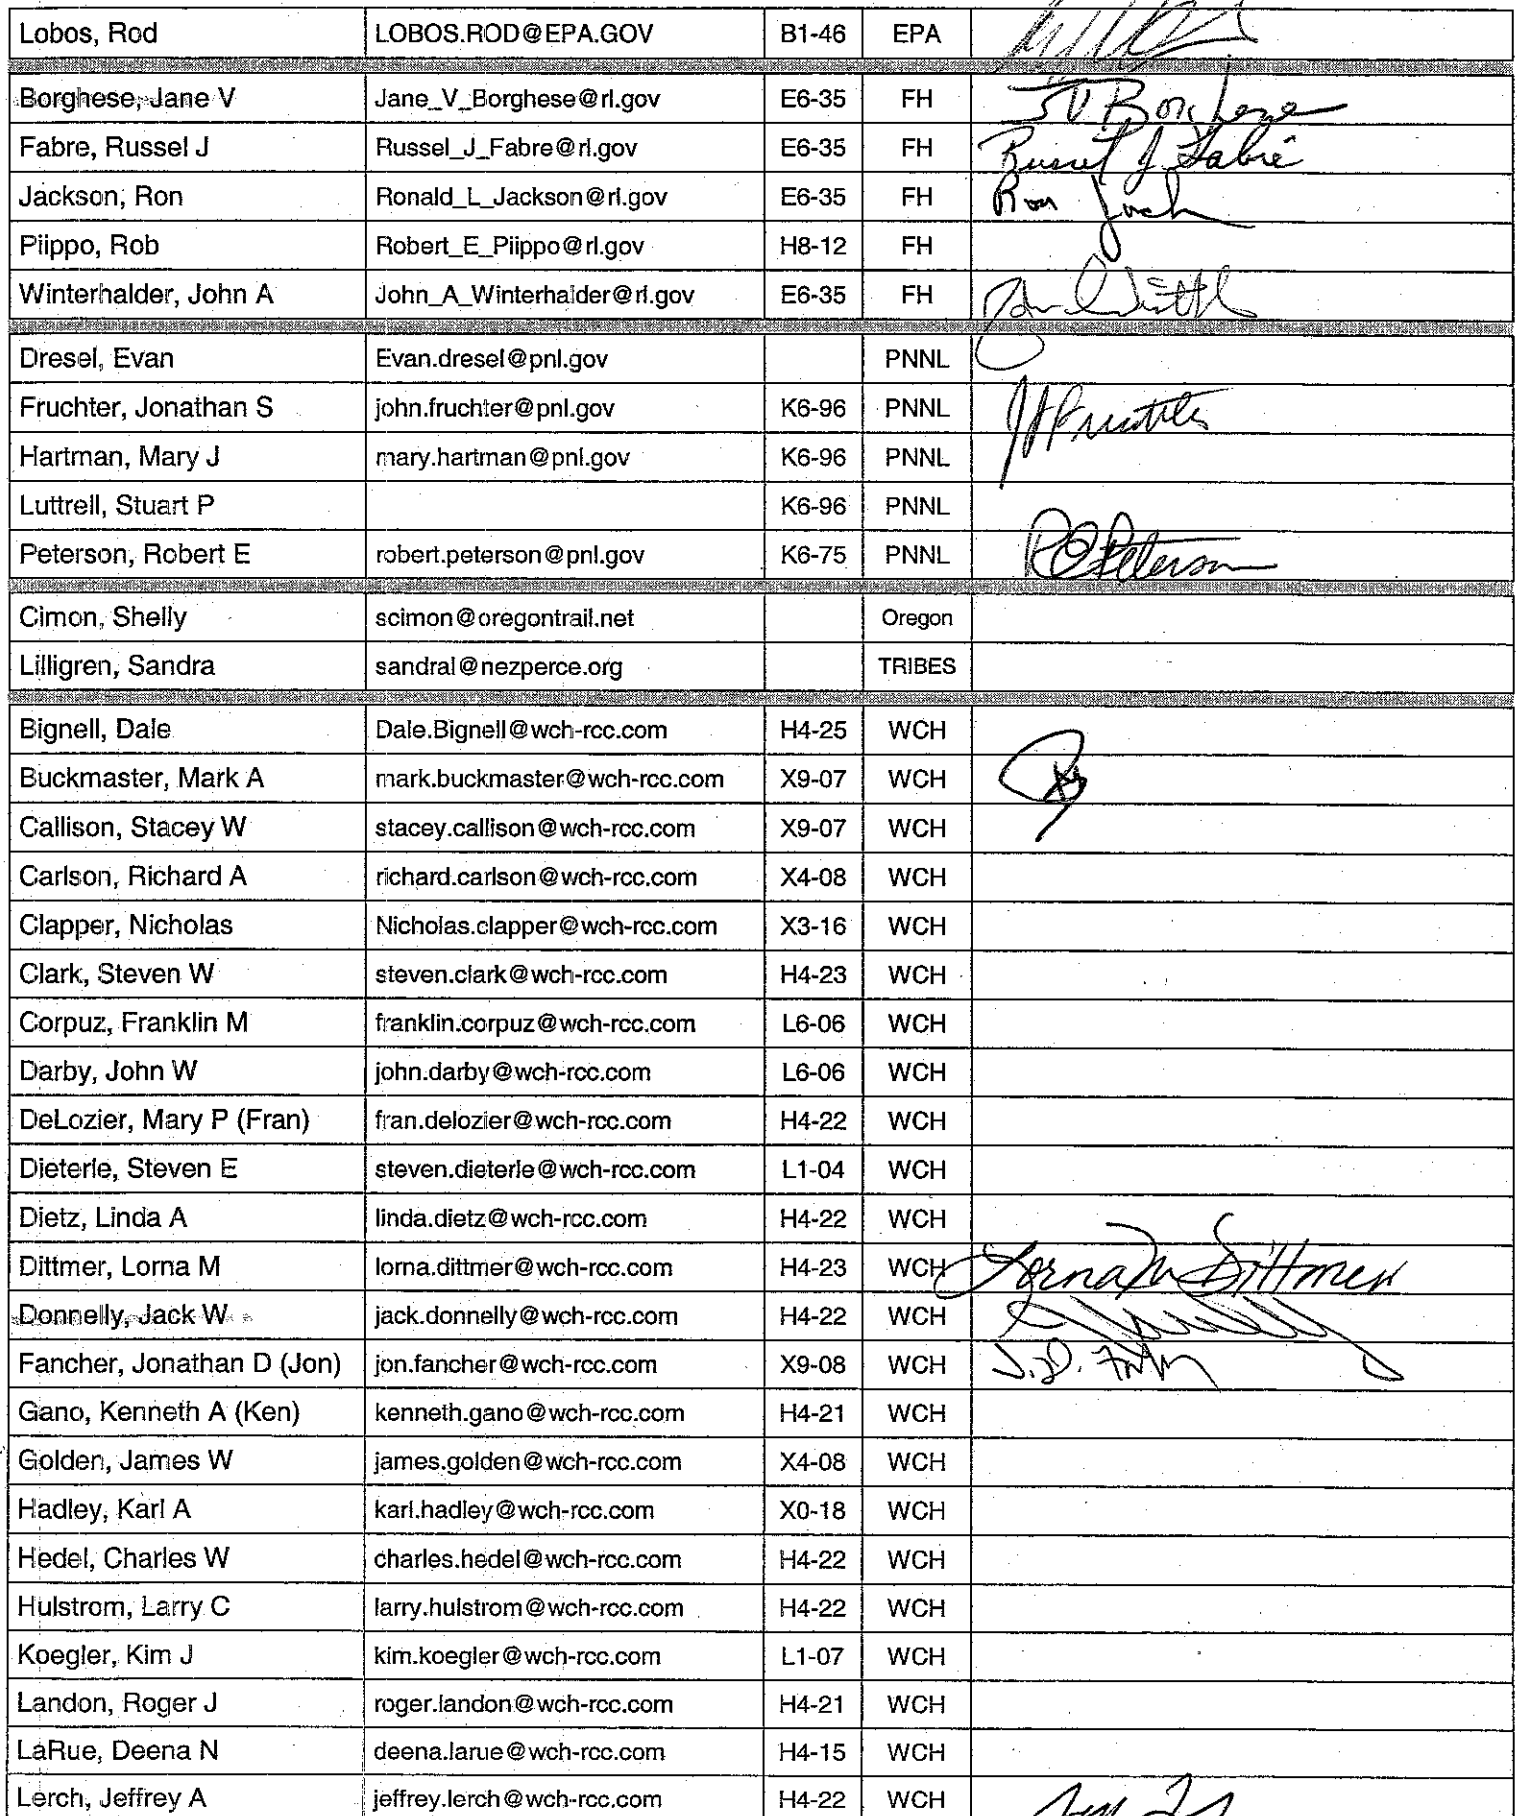 Lobos, Rod LOBOS.ROD@EPA.GOV B1-46 EPA
Borghese, Jane V Jane_V_Borghese@rl.gov E6-35 FH JV Borghese
Fabre, Russel J Russel_J_Fabre@rl.gov E6-35 FH Russel J Fabre
Jackson, Ron Ronald_L_Jackson@rl.gov E6-35 FH Ron Jack
Piippo, Rob Robert_E_Piippo@rl.gov H8-12 FH
Winterhalder, John A John_A_Winterhalder@rl.gov E6-35 FH John
Dresel, Evan Evan.dresel@pnl.gov PNNL
Fruchter, Jonathan S john.fruchter@pnl.gov K6-96 PNNL JS Fruchter
Hartman, Mary J mary.hartman@pnl.gov K6-96 PNNL
Luttrell, Stuart P K6-96 PNNL
Peterson, Robert E robert.peterson@pnl.gov K6-75 PNNL RE Peterson
Cimon, Shelly scimon@oregontrail.net Oregon
Lilligren, Sandra sandral@nezperce.org TRIBES
Bignell, Dale Dale.Bignell@wch-rcc.com H4-25 WCH
Buckmaster, Mark A mark.buckmaster@wch-rcc.com X9-07 WCH
Callison, Stacey W stacey.callison@wch-rcc.com X9-07 WCH
Carlson, Richard A richard.carlson@wch-rcc.com X4-08 WCH
Clapper, Nicholas Nicholas.clapper@wch-rcc.com X3-16 WCH
Clark, Steven W steven.clark@wch-rcc.com H4-23 WCH
Corpuz, Franklin M franklin.corpuz@wch-rcc.com L6-06 WCH
Darby, John W john.darby@wch-rcc.com L6-06 WCH
DeLozier, Mary P (Fran) fran.delozier@wch-rcc.com H4-22 WCH
Dieterle, Steven E steven.dieterle@wch-rcc.com L1-04 WCH
Dietz, Linda A linda.dietz@wch-rcc.com H4-22 WCH
Dittmer, Lorna M lorna.dittmer@wch-rcc.com H4-23 WCH Lorna M Dittmer
Donnelly, Jack W jack.donnelly@wch-rcc.com H4-22 WCH
Fancher, Jonathan D (Jon) jon.fancher@wch-rcc.com X9-08 WCH J.D.
Gano, Kenneth A (Ken) kenneth.gano@wch-rcc.com H4-21 WCH
Golden, James W james.golden@wch-rcc.com X4-08 WCH
Hadley, Karl A karl.hadley@wch-rcc.com X0-18 WCH
Hedel, Charles W charles.hedel@wch-rcc.com H4-22 WCH
Hulstrom, Larry C larry.hulstrom@wch-rcc.com H4-22 WCH
Koegler, Kim J kim.koegler@wch-rcc.com L1-07 WCH
Landon, Roger J roger.landon@wch-rcc.com H4-21 WCH
LaRue, Deena N deena.larue@wch-rcc.com H4-15 WCH
Lerch, Jeffrey A jeffrey.lerch@wch-rcc.com H4-22 WCH